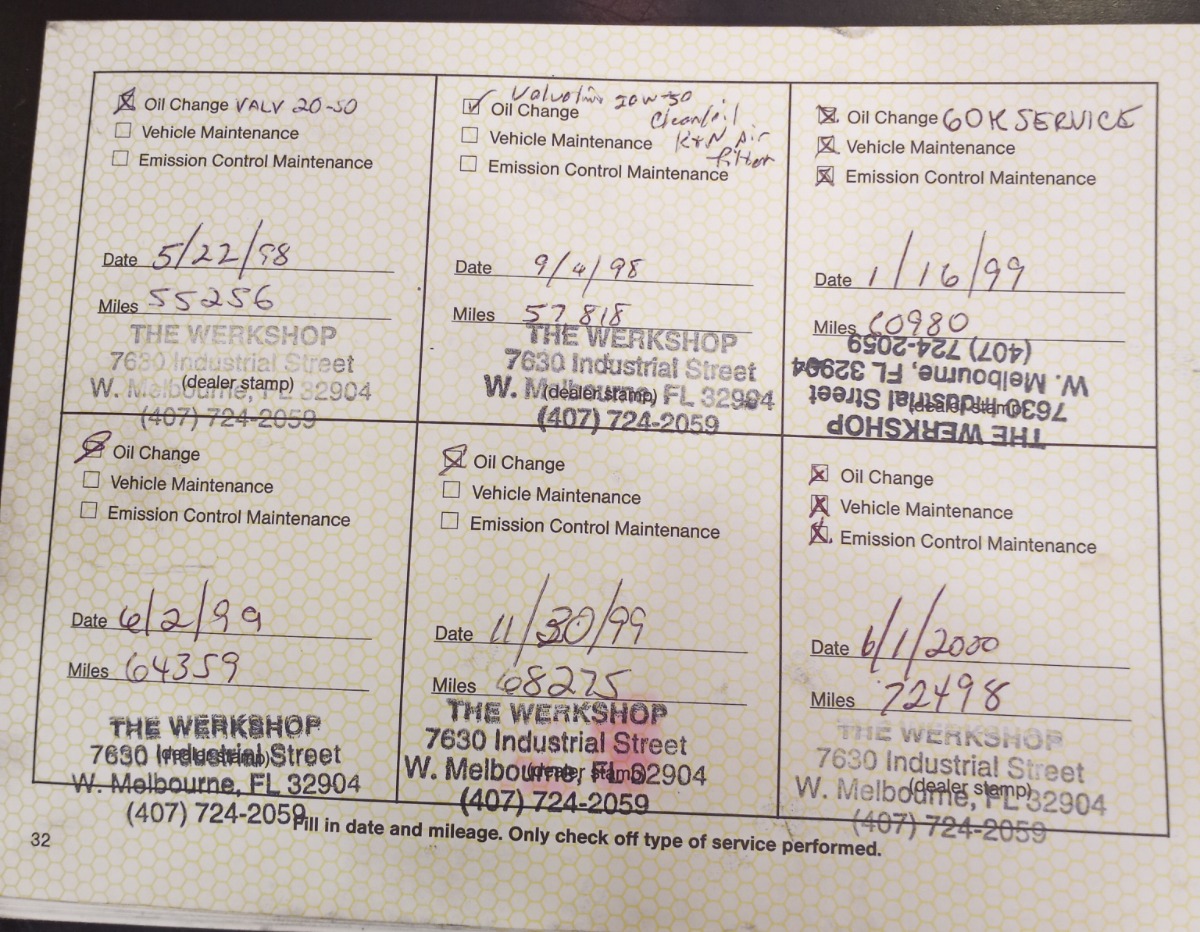 Oil Change VALV 20-50
Vehicle Maintenance
Emission Control Maintenance
Date 5/22/98
Miles 55256
THE WERKSHOP
7630 Industrial Street
(dealer stamp)
W. Melbourne, FL 32904
(407) 724-2059
Valvoline 20W-50
Oil Change
Clean/oil
Vehicle Maintenance K+N Air
filter
Emission Control Maintenance
Date 9/4/98
Miles 57818
THE WERKSHOP
7630 Industrial Street
(dealer stamp)
W. Melbourne, FL 32904
(407) 724-2059
Oil Change 60K SERVICE
Vehicle Maintenance
Emission Control Maintenance
Date 1/16/99
Miles 60980
THE WERKSHOP
7630 Industrial Street
(dealer stamp)
W. Melbourne, FL 32904
(407) 724-2059
Oil Change
Vehicle Maintenance
Emission Control Maintenance
Date 6/2/99
Miles 64359
THE WERKSHOP
7630 Industrial Street
(dealer stamp)
W. Melbourne, FL 32904
(407) 724-2059
Oil Change
Vehicle Maintenance
Emission Control Maintenance
Date 11/30/99
Miles 68275
THE WERKSHOP
7630 Industrial Street
(dealer stamp)
W. Melbourne, FL 32904
(407) 724-2059
Oil Change
Vehicle Maintenance
Emission Control Maintenance
Date 6/1/2000
Miles 72498
THE WERKSHOP
7630 Industrial Street
(dealer stamp)
W. Melbourne, FL 32904
(407) 724-2059
Fill in date and mileage. Only check off type of service performed.
32